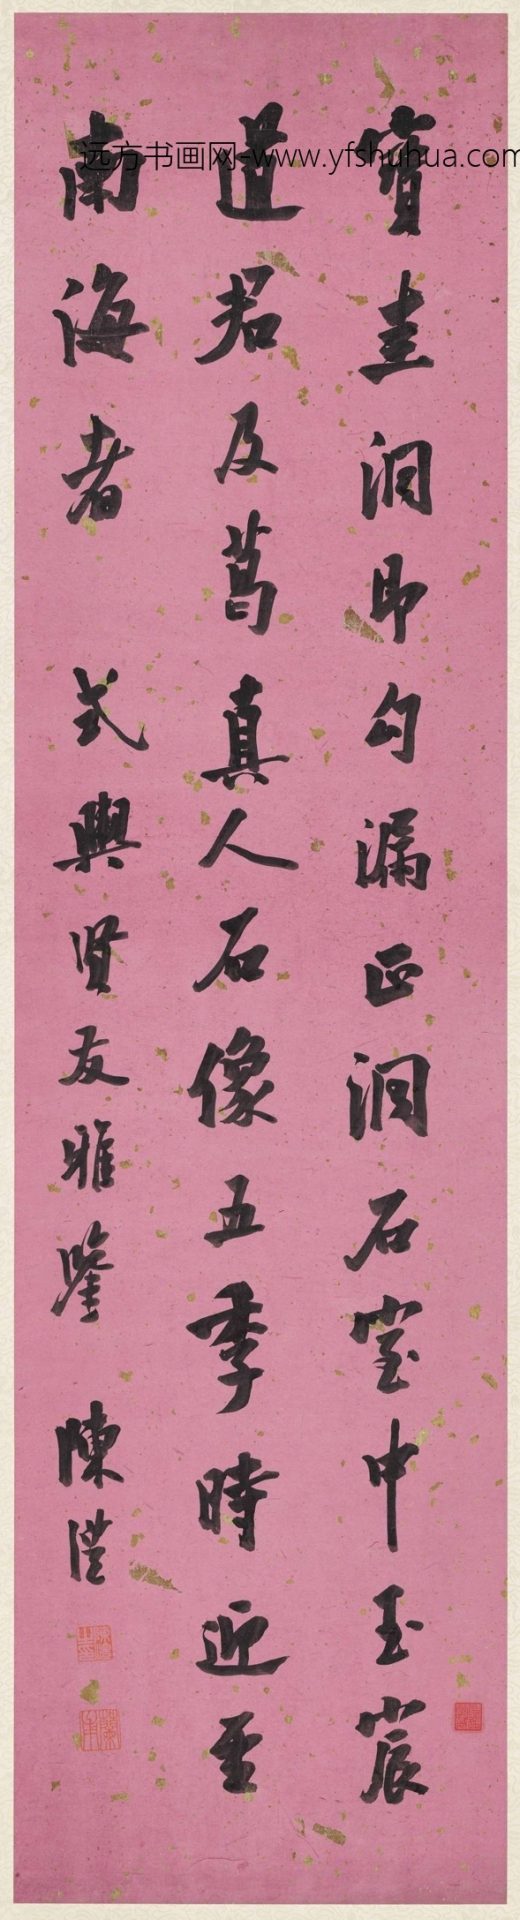 寶圭洞即勾漏正洞石室中玉宸
道君及葛真人石像五季時迎至
南海者 式輿賢友雅鑒 陳澧
远方书画网-www.yfshuhua.com